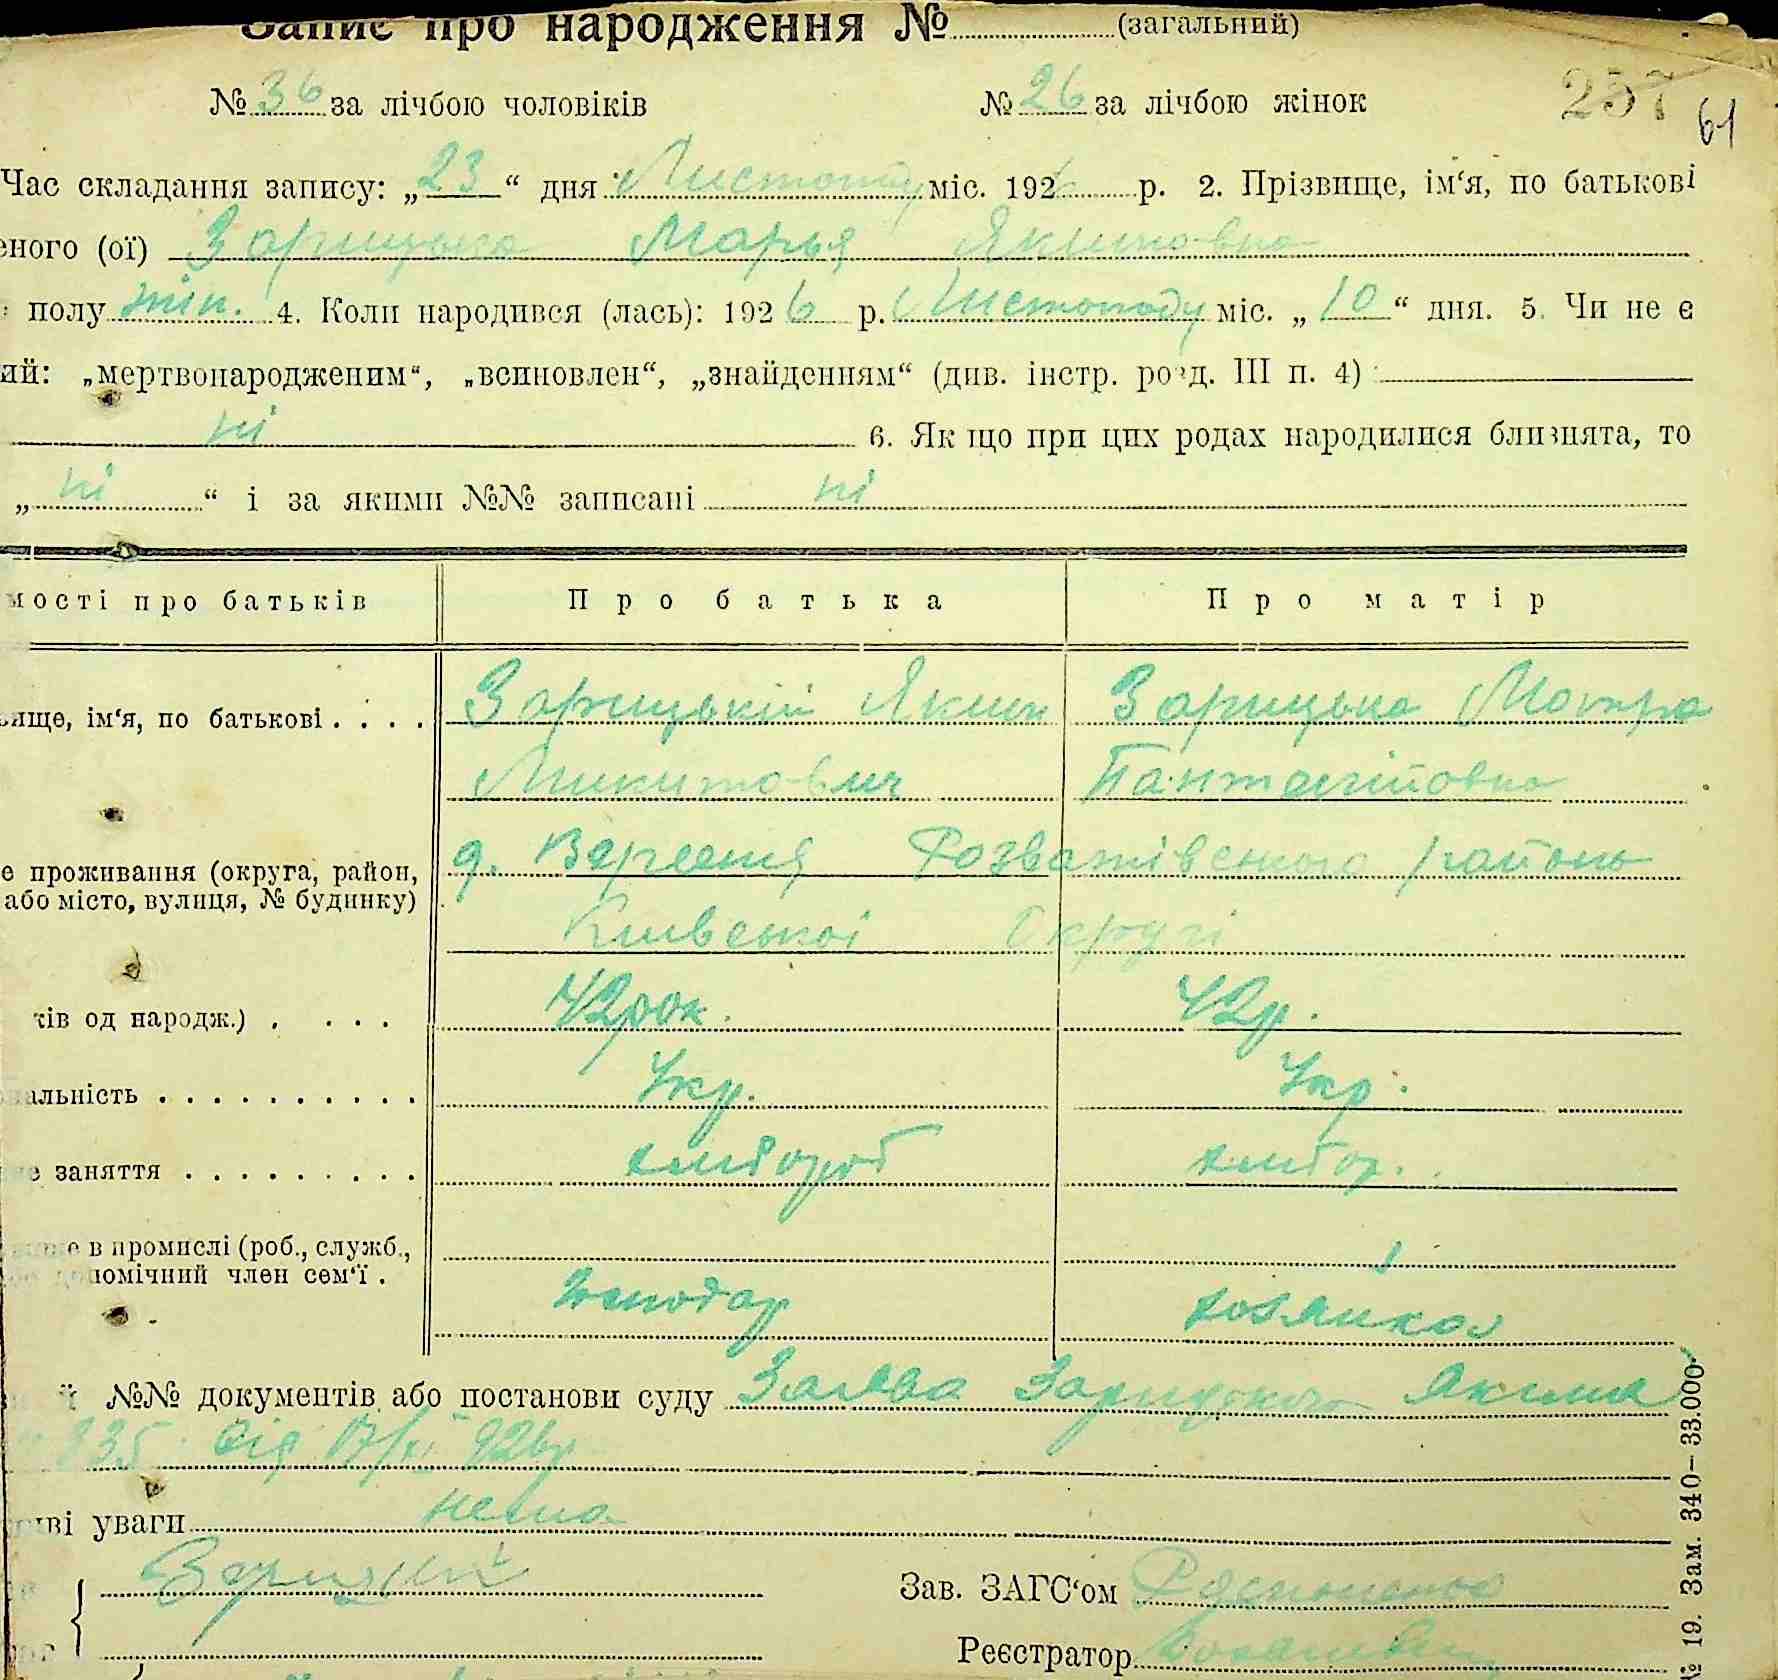 Запис про народження № (загальний)
№ 36 за лічбою чоловіків № 26 за лічбою жінок 257 61
Час складання запису: „23“ дня Листопаду міс. 1926 р. 2. Прізвище, ім‘я, по батькові
еного (ої) Зарицька Марья Якимовна
полу жін. 4. Коли народився (лась): 1926 р. Листопаду міс. „10“ дня. 5. Чи не є
ий: „мертвонародженим“, „всиновлен“, „знайденням“ (див. інстр. розд. III п. 4)
ні 6. Як що при цих родах народилися близнята, то
„ні“ і за якими №№ записані ні
мості про батьків Про батька Про матір
вище, ім‘я, по батькові Зарицький Яким Зарицька Мотра
Микитович Пантелійовна
е проживання (округа, район, д. Вересня Розважівського району
або місто, вулиця, № будинку)
Київської Округі
ків од народж.) 42 рок. 42 р.
нальність Укр. Укр.
не заняття хлібороб хлібор.
в промислі (роб., служб.,
допомічний член сем‘ї. Господар хозяйка
й №№ документів або постанови суду Заява Зарицького Якима
835 від 17/XI 926 р
иві уваги нема
Зарицкий Зав. ЗАГС‘ом
Реєстратор
№ 19. Зам. 340–33.000.